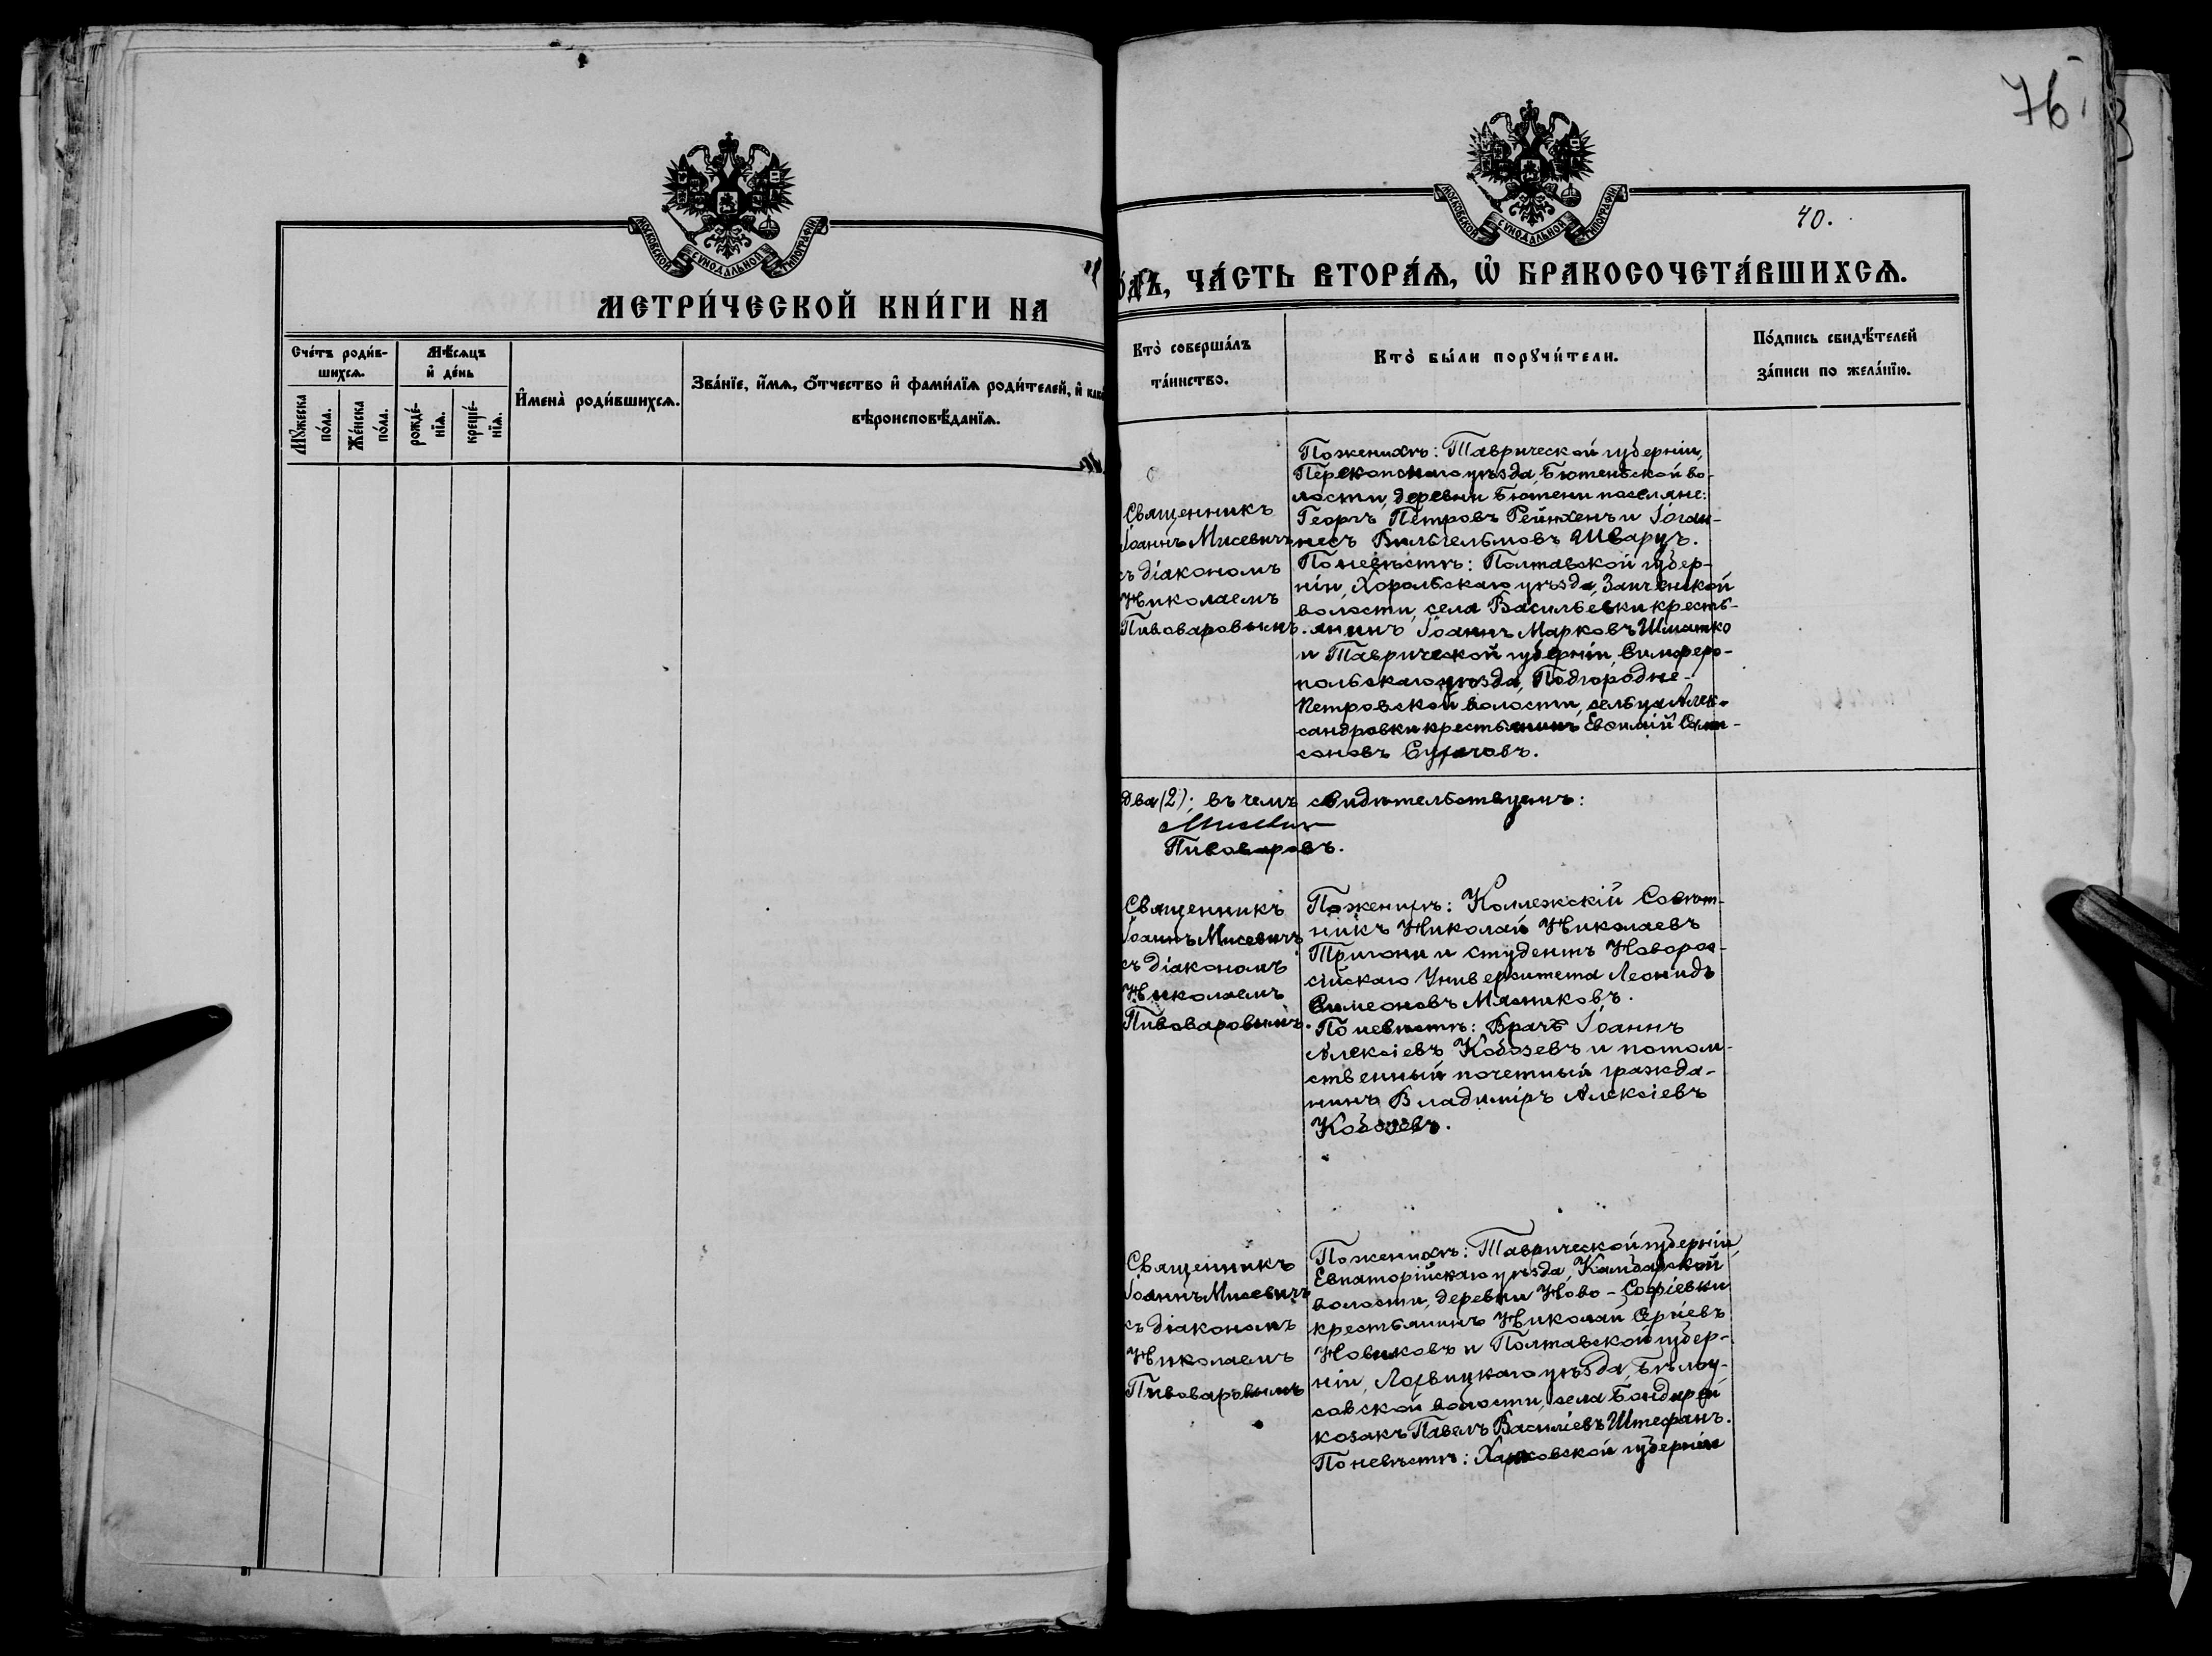 МОСКОВСКОЙ СѴНОДАЛЬНОЙ ТИПОГРАФІИ
МЕТРИ́ЧЕСКОЙ КНИ́ГИ НА
Сче́тъ роди́в-
шихсѧ.
Мѣ́сѧцъ
и҆ де́нь
И҆мена̀ роди́вшихсѧ.
Зва́нїе, и҆́мѧ, ѻ҆́тчество и҆ фами́лїѧ роди́телей, и҆
вѣроисповѣ́данїѧ.
Мꙋ́жеска
по́ла.
Же́нска
по́ла.
рожде́-
нїѧ.
креще́-
нїѧ.
76
МОСКОВСКОЙ СѴНОДАЛЬНОЙ ТИПОГРАФІИ
40.
о́дъ, ЧА́СТЬ ВТОРА́Ѧ, Ѡ҆ БРАКОСОЧЕТА́ВШИХСѦ.
Кто̀ соверша́лъ
та́инство.
Кто̀ бы́ли порꙋчи́тели.
По́дпись свидѣ́телей
за́писи по жела́нїю.
Священникъ
Іоаннъ Мисевичъ
съ діакономъ
Николаемъ
Пивоваровымъ.
По женихѣ: Таврической губерніи,
Перекопскаго уѣзда, Бютеньской во-
лости, деревни Бютени поселяне:
Георгъ Петровъ Рейнхенъ и Іоган-
несъ Вильгельмовъ Шварцъ.
По невѣстѣ: Полтавской губер-
ніи, Хорольскаго уѣзда, Заиченской
волости, села Васильевки кресть-
янинъ Іоаннъ Марковъ Шматко
и Таврической губерніи, Симферо-
польскаго уѣзда, Подгородне-
Петровской волости, сельца Алек-
сандровки крестьянинъ Евѳимій Сам-
соновъ Сугаговъ.
Два (2); въ чемъ свидѣтельствуемъ:
Мисевич
Пивоваровъ.
Священникъ
Іоаннъ Мисевичъ
съ діакономъ
Николаемъ
Пивоваровымъ.
По женихѣ: Коллежскій Совѣт-
никъ Николай Николаевъ
Тригони и студентъ Новорос-
сійскаго Университета Леонидъ
Симеоновъ Мясниковъ.
По невѣстѣ: Врачъ Іоаннъ
Алексіевъ Кобозевъ и потом-
ственный почетный гражда-
нинъ Владиміръ Алексіевъ
Кобозевъ.
Священникъ
Іоаннъ Мисевичъ
съ діакономъ
Николаемъ
Пивоваровымъ
По женихѣ: Таврической губерніи,
Евпаторійскаго уѣзда, Камбарской
волости, деревни Ново-Софіевки
крестьянинъ Николай Сергіевъ
Новиковъ и Полтавской губер-
ніи, Лохвицкаго уѣзда, Бѣлоу-
совской волости, села Бондарей
козакъ Павелъ Василіевъ Штефанъ.
По невѣстѣ: Харьковской губерніи